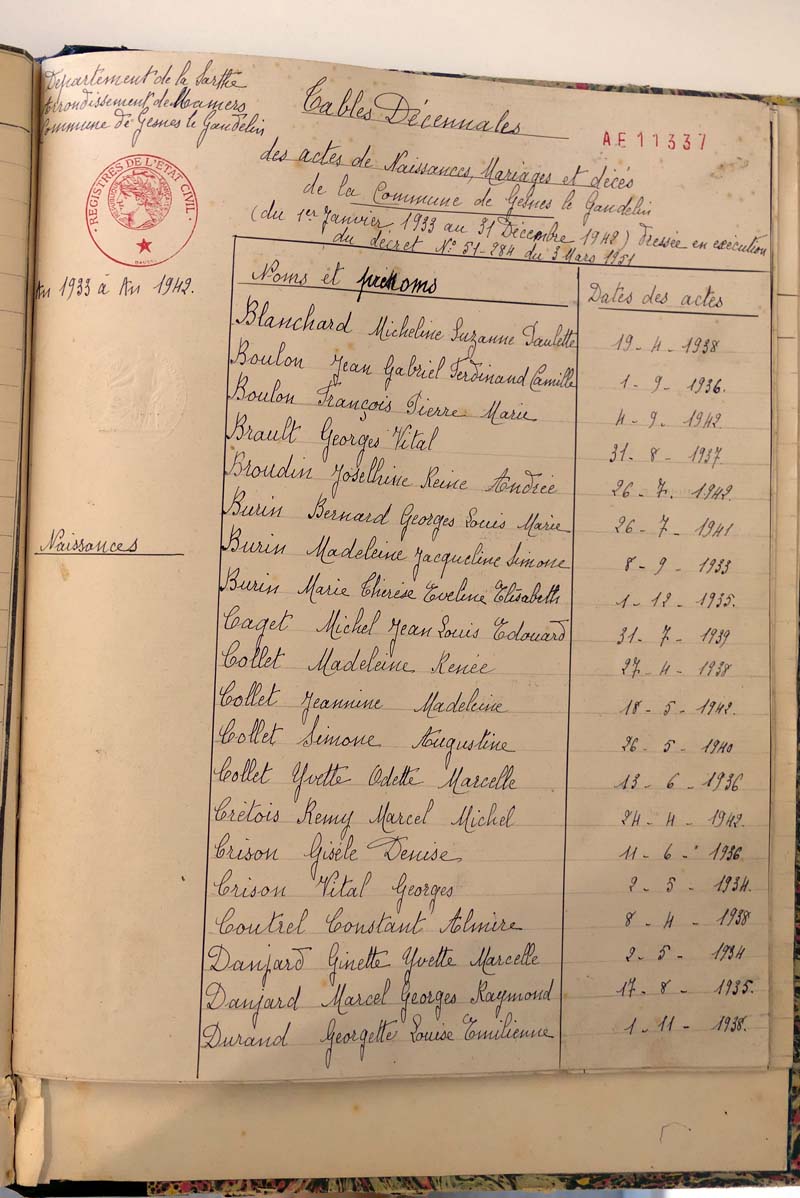 Département de la Sarthe
Arrondissement de Mamers
Commune de Gesnes le Gandelin
Tables Décennales
AE 11337
des actes de Naissances, Mariages et décés
de la Commune de Gesnes le Gandelin
(du 1er Janvier 1933 au 31 Décembre 1942) dressée en exécution
du décret N° 51-284 du 3 Mars 1951
REGISTRES DE L'ETAT CIVIL
An 1933 à An 1942.
Naissances
Noms et prénoms Dates des actes
Blanchard Micheline Suzanne Paulette 19 - 4 - 1938
Boulon Jean Gabriel Ferdinand Camille 1 - 9 - 1936.
Boulon François Pierre Marie 4 - 9 - 1942
Brault Georges Vital 31 - 8 - 1937
Broudin Joselhine Reine Andrée 26 - 7. 1942.
Burin Bernard Georges Louis Marie 26 - 7 - 1941
Burin Madeleine Jacqueline Simone 8 - 9 - 1933
Burin Marie Thérèse Eveline Elisabeth 1 - 12 - 1935.
Caget Michel Jean Louis Edouard 31 - 7 - 1939
Collet Madeleine Renée 27 - 4 - 1938
Collet Jeannine Madeleine 18 - 5 - 1942.
Collet Simone Augustine 26 - 5 - 1940
Collet Yvette Odette Marcelle 13 - 6 - 1936
Crétois Remy Marcel Michel 24 - 4 - 1942.
Crison Gisèle Denise 11 - 6 - 1936
Crison Vital Georges 2 - 5 - 1934.
Coutrel Constant Almire 8 - 4 - 1938
Danjard Ginette Yvette Marcelle 2 - 5 - 1934
Danjard Marcel Georges Raymond 17 - 8 - 1935.
Durand Georgette Louise Emilienne 1 - 11 - 1938.